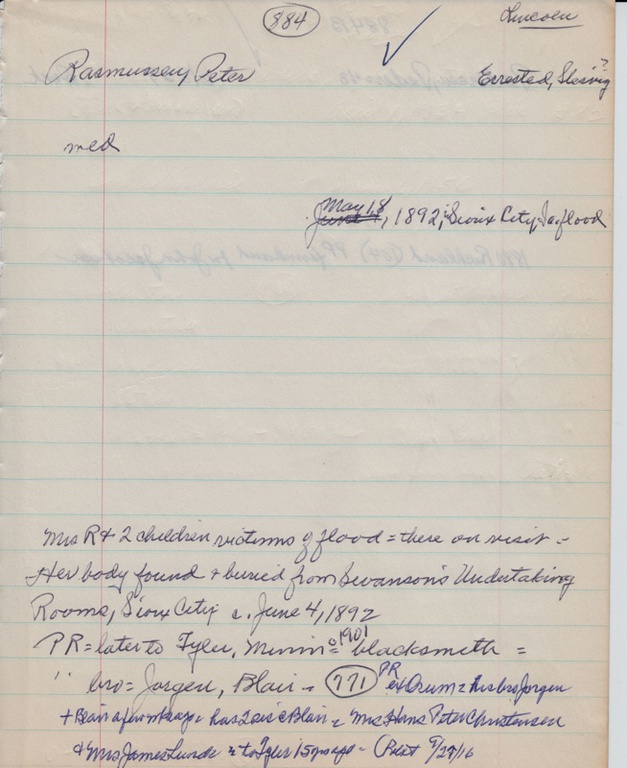 884
Lincoln
Rasmussen, Peter
Errested, Slesvig ?
med
May 18, 1892, Sioux City, Ia. flood
Mrs R + 2 children victims of flood = there on visit -
Her body found + buried from Swanson's Undertaking
Rooms, Sioux City c. June 4, 1892
PR = later to Tyler, Minn = c 1901 blacksmith =
" bro = Jorgen, Blair - 771 PR ex Orum = his bro Jorgen
+ Blair a few wks ago = has 2 sis c Blair = Mrs Hans Peter Christensen
+ Mrs James Lund = to Tyler 15 yrs ago - (Pilot 9/27/16